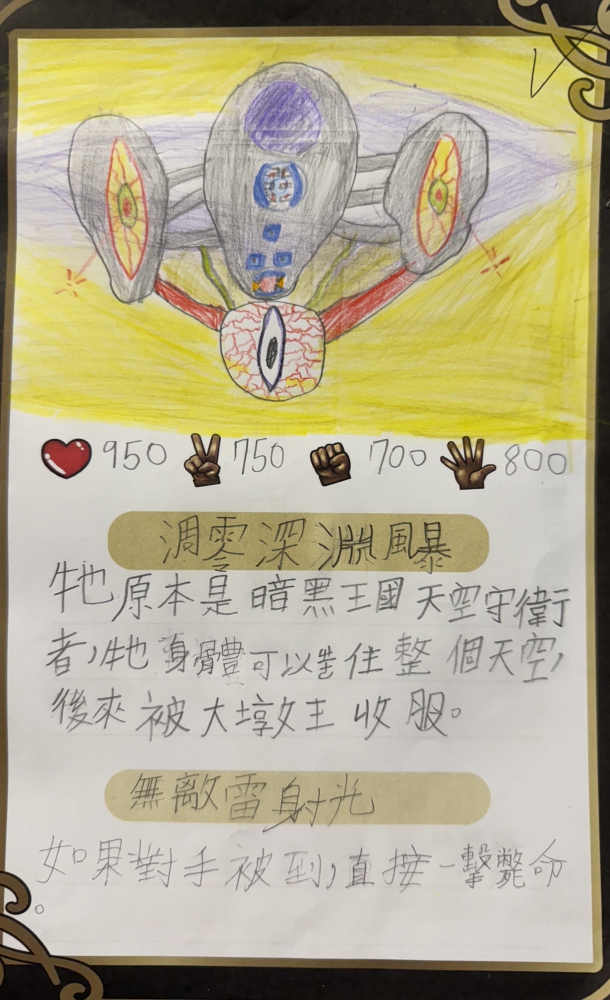 950 750 700 800
凋零深淵風暴
牠原本是暗黑王國天空守衛
者,牠身體可以 住整個天空,
後來被大墩 王收服。
無敵雷射光
如果對手被 到,直接一擊斃命
。